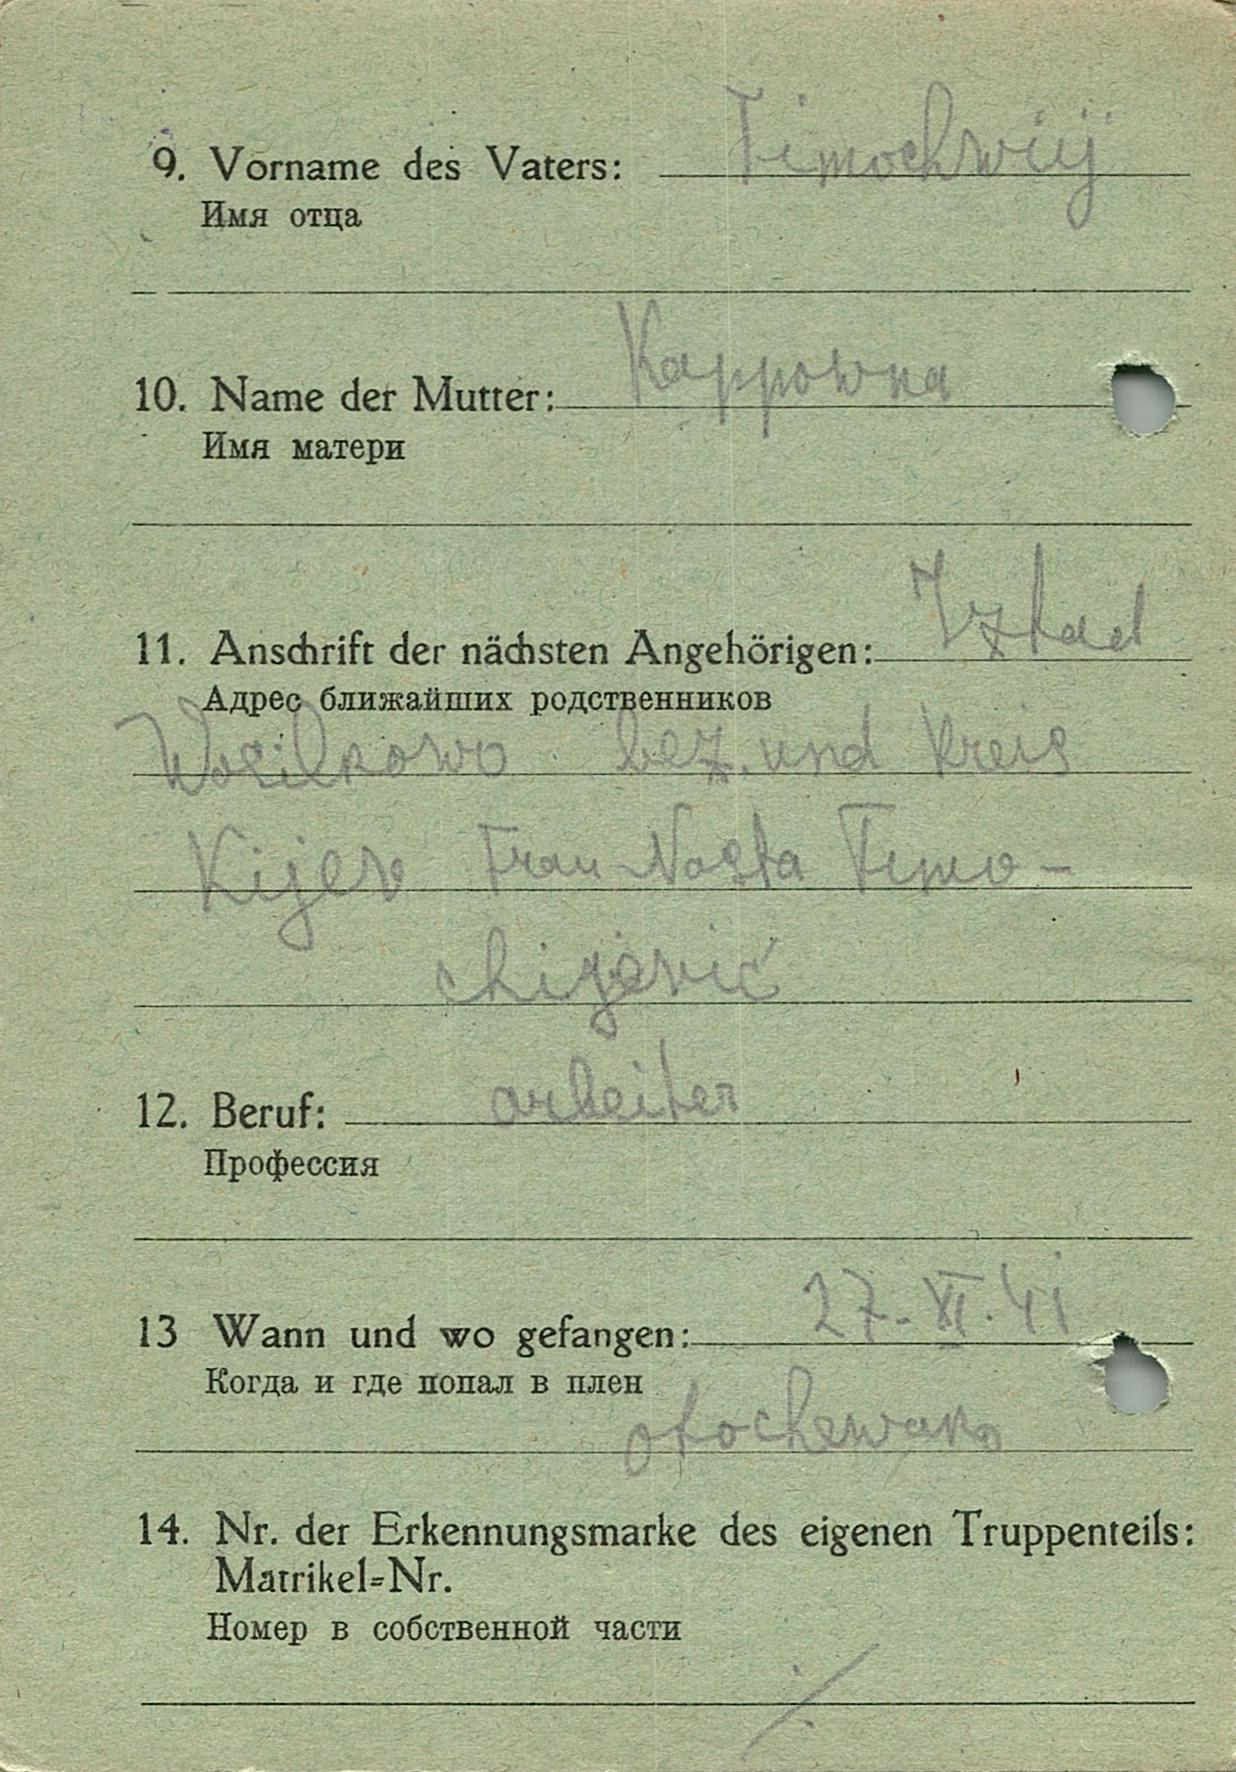 9. Vorname des Vaters: Timochwij
Имя отца
10. Name der Mutter: Kappowna
Имя матери
11. Anschrift der nächsten Angehörigen:
Адрес ближайших родственников
Wasilkowo bez. und Kreis
Kijev Frau Nasta Timo-
chijević
12. Beruf: arbeiter
Профессия
13 Wann und wo gefangen: 27. XI. 41
Когда и где попал в плен
14. Nr. der Erkennungsmarke des eigenen Truppenteils:
Matrikel=Nr.
Номер в собственной части